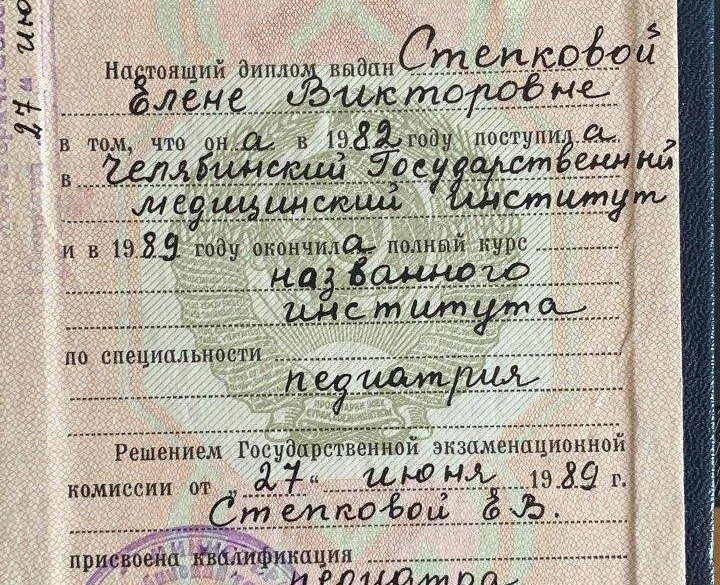 Настоящий диплом выдан Степковой
Елене Викторовне
в том, что он а в 1982 году поступил а
в Челябинский Государственный
медицинский институт
и в 1989 году окончил а полный курс
названного
института
по специальности
педиатрия
Решением Государственной экзаменационной
комиссии от „27“ июня 1989 г.
Степковой Е В.
присвоена квалификация
педиатра
27 „ ию